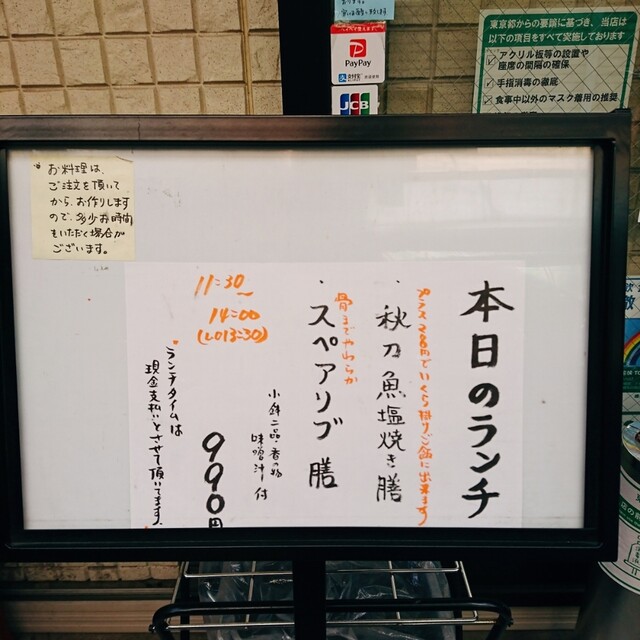 東京都からの要請に基づき、当店は
以下の項目をすべて実施しております
アクリル板等の設置や
座席の間隔の確保
手指消毒の徹底
食事中以外のマスク着用の推奨
PayPay
JCB
お料理は、
ご注文を頂いて
から、お作りします
ので、多少お時間
をいただく場合が
ございます。
本日のランチ
プラス200円でいくら掛けご飯に出来ます
・秋刀魚塩焼き膳
骨までやわらか
・スペアリブ膳
小鉢二品 香の物
味噌汁 付
990円
11:30
〜
14:00
(LO13:30)
ランチタイムは
現金支払いとさせて頂いてます。